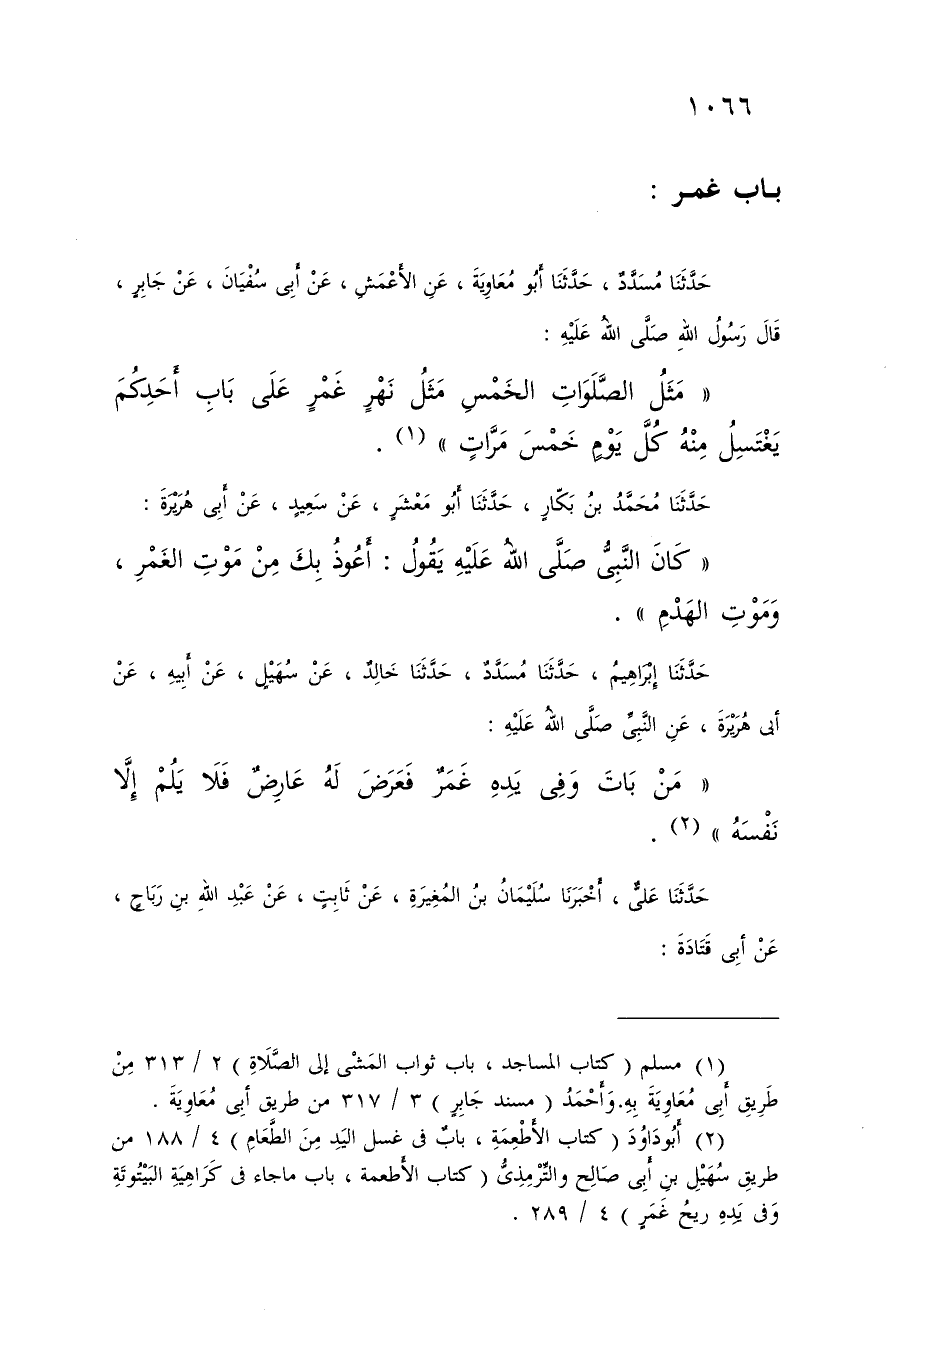 ١٠٦٦
بـاب غمـر :
حَدَّثَنَا مُسَدَّدٌ ، حَدَّثَنَا أَبُو مُعَاوِيَةَ ، عَنِ الأَعْمَشِ ، عَنْ أَبِى سُفْيَانَ ، عَنْ جَابِرٍ ،
قَالَ رَسُولُ اللهِ صَلَّى اللهُ عَلَيْهِ :
« مَثَلُ الصَّلَوَاتِ الخَمْسِ مَثَلُ نَهْرٍ غَمْرٍ عَلَى بَابِ أَحَدِكُمَ
يَغْتَسِلُ مِنْهُ كُلَّ يَوْمٍ خَمْسَ مَرَّاتٍ » (١) .
حَدَّثَنَا مُحَمَّدُ بنُ بَكَّارٍ ، حَدَّثَنَا أَبُو مَعْشَرٍ ، عَنْ سَعِيدٍ ، عَنْ أَبِى هُرَيْرَةَ :
« كَانَ النَّبِىُّ صَلَّى اللهُ عَلَيْهِ يَقُولُ : أَعُوذُ بِكَ مِنْ مَوْتِ الغَمْرِ ،
وَمَوْتِ الهَدْمِ » .
حَدَّثَنَا إِبْرَاهِيمُ ، حَدَّثَنَا مُسَدَّدٌ ، حَدَّثَنَا خَالِدٌ ، عَنْ سُهَيْلٍ ، عَنْ أَبِيهِ ، عَنْ
أبى هُرَيْرَةَ ، عَنِ النَّبِىِّ صَلَّى اللهُ عَلَيْهِ :
« مَنْ بَاتَ وَفِى يَدِهِ غَمَرٌ فَعَرَضَ لَهُ عَارِضٌ فَلَا يَلُمْ إِلَّا
نَفْسَهُ » (٢) .
حَدَّثَنَا عَلىٌّ ، أَخْبَرَنَا سُلَيْمَانُ بنُ المُغِيرَةِ ، عَنْ ثَابِتٍ ، عَنْ عَبْدِ اللهِ بنِ رَبَاحٍ ،
عَنْ أبِى قَتَادَةَ :
(١) مسلم ( كتاب المساجد ، باب ثواب المَشْى إلى الصَّلَاةِ ) ٢ / ٣١٣ مِنْ
طَرِيقِ أَبِى مُعَاوِيَةَ بِهِ.وَأَحْمَدُ ( مسند جَابِرٍ ) ٣ / ٣١٧ من طريق أبى مُعَاوِيَةَ .
(٢) أَبُودَاوُدَ ( كتاب الأَطْعِمَةِ ، بابٌ فى غسل اليَدِ مِنَ الطَّعَامِ ) ٤ / ١٨٨ من
طريقِ سُهَيْلِ بنِ أَبِى صَالِحٍ والتِّرْمِذِىُّ ( كتاب الأَطعمة ، باب ماجاء فى كَرَاهِيَةِ البَيْتُوتَةِ
وَفى يَدِهِ ريحُ غَمَرٍ ) ٤ / ٢٨٩ .